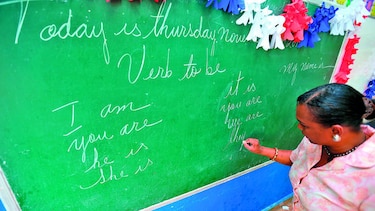 Today is thursday, Nov
Verb to be
My Name is
I am
You are
he is
she is
it is
you are
we are
they